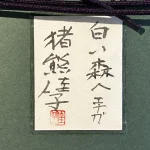 白い森へ手が
猪熊佳子